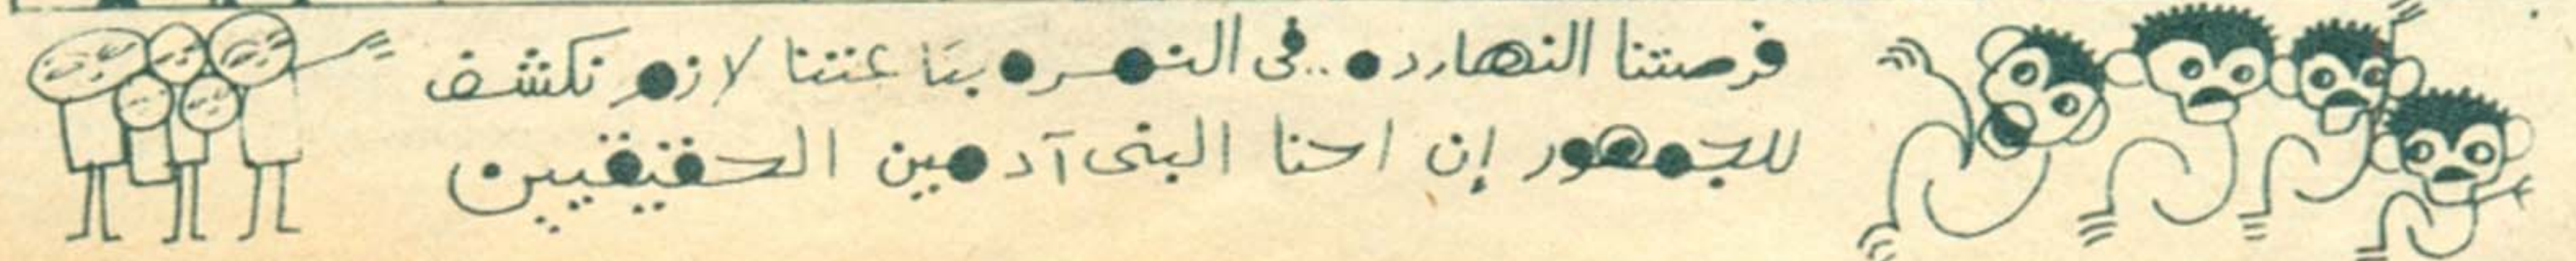 فرصتنا النهارده .. فى النمره بتاعتنا لازم نكشف
للجمهور إن احنا البنى آدمين الحقيقيين